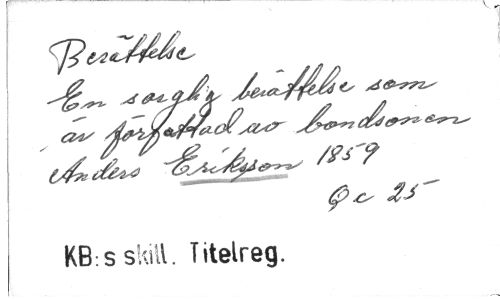 Berättelse
En sorglig berättelse som
är författad av bondsonen
Anders Eriksson 1859
Qc 25
KB:s skill. Titelreg.